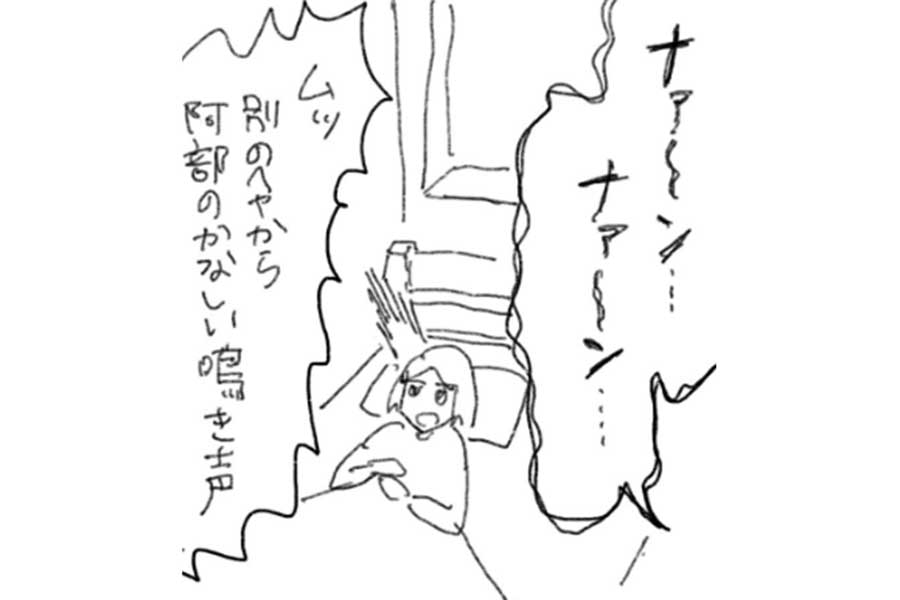 ナァ～ン…
ナァ～ン……
ムッ
別のへやから
阿部のかなしい鳴き声